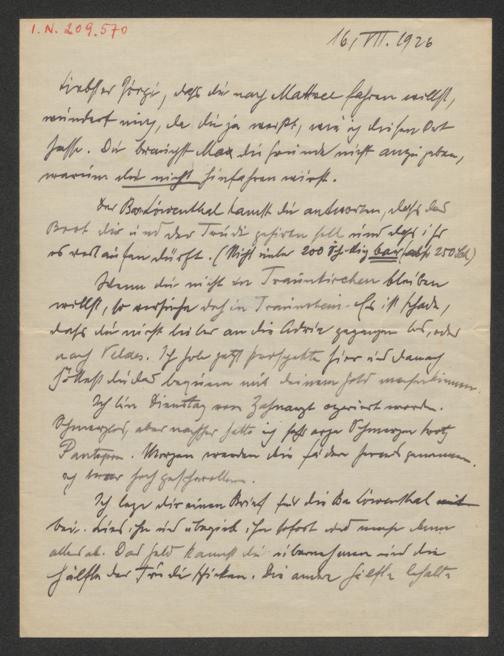 I.N. 209.570
16. VII. 1926
Liebster Görgi, dass du nach Mattsee fahren willst,
wundert mich, da du ja weißt, wie ich diesen Ort
hasse. Du brauchst Max die Gründe nicht anzugeben,
warum du nicht hinfahren wirst.
Der Löwenthal kannst du antworten, dass das
Boot dir und der Trude gehören soll und dass ihr
es verkaufen dürft. (Nicht unter 200 Schillig bar 250
Wenn du nicht in Traunkirchen bleiben
willst, so versuche doch in Traunstein. Es ist schade,
dass du nicht lieber an die Adria gegangen bist, oder
nach Veldes. Ich habe jetzt Prospekte hier und danach
hättest du das bequem mit deinem Geld machen können.
Ich bin Dienstag vom Zahnarzt operiert worden.
Schmerzlos, aber nachher hatte ich sehr arge Schmerzen trotz
Pantopon. Morgen werden die Fäden herausgenommen.
hochgeschwollen.
Ich lege dir einen Brief für die Löwenthal
bei. Lies ihn und übergieb ihn sofort und mache dann
alles ab. Das Geld kannst du übernehmen und die
Hälfte der Trude schicken. Die andre Hälfte behalte